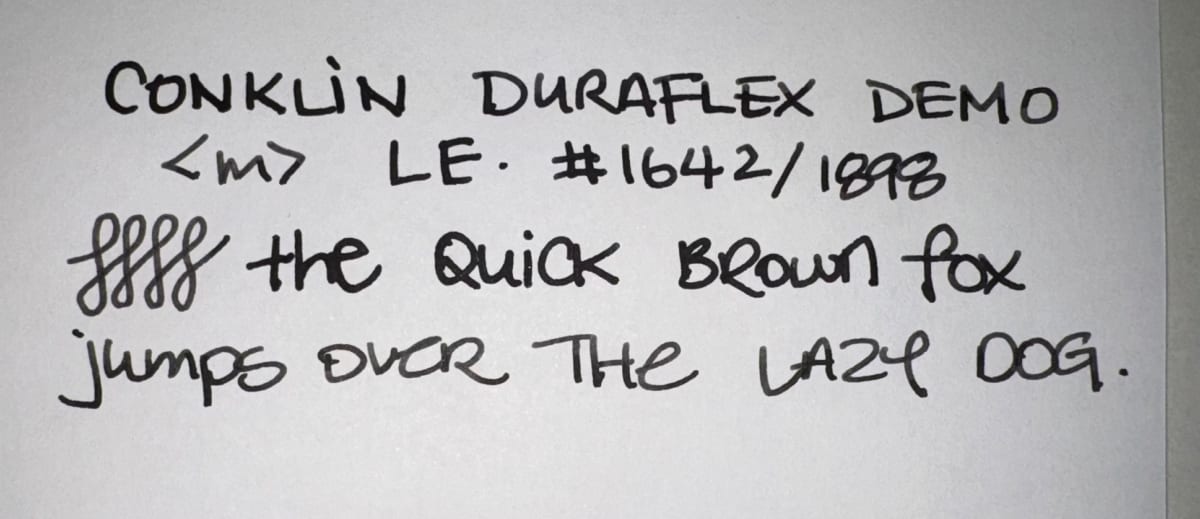 CONKLiN DURAFLEX DEMO
<m> LE. #1642/1898
ffff the QuicK BROwn fox
jumps OVER THe LAZY DOG.